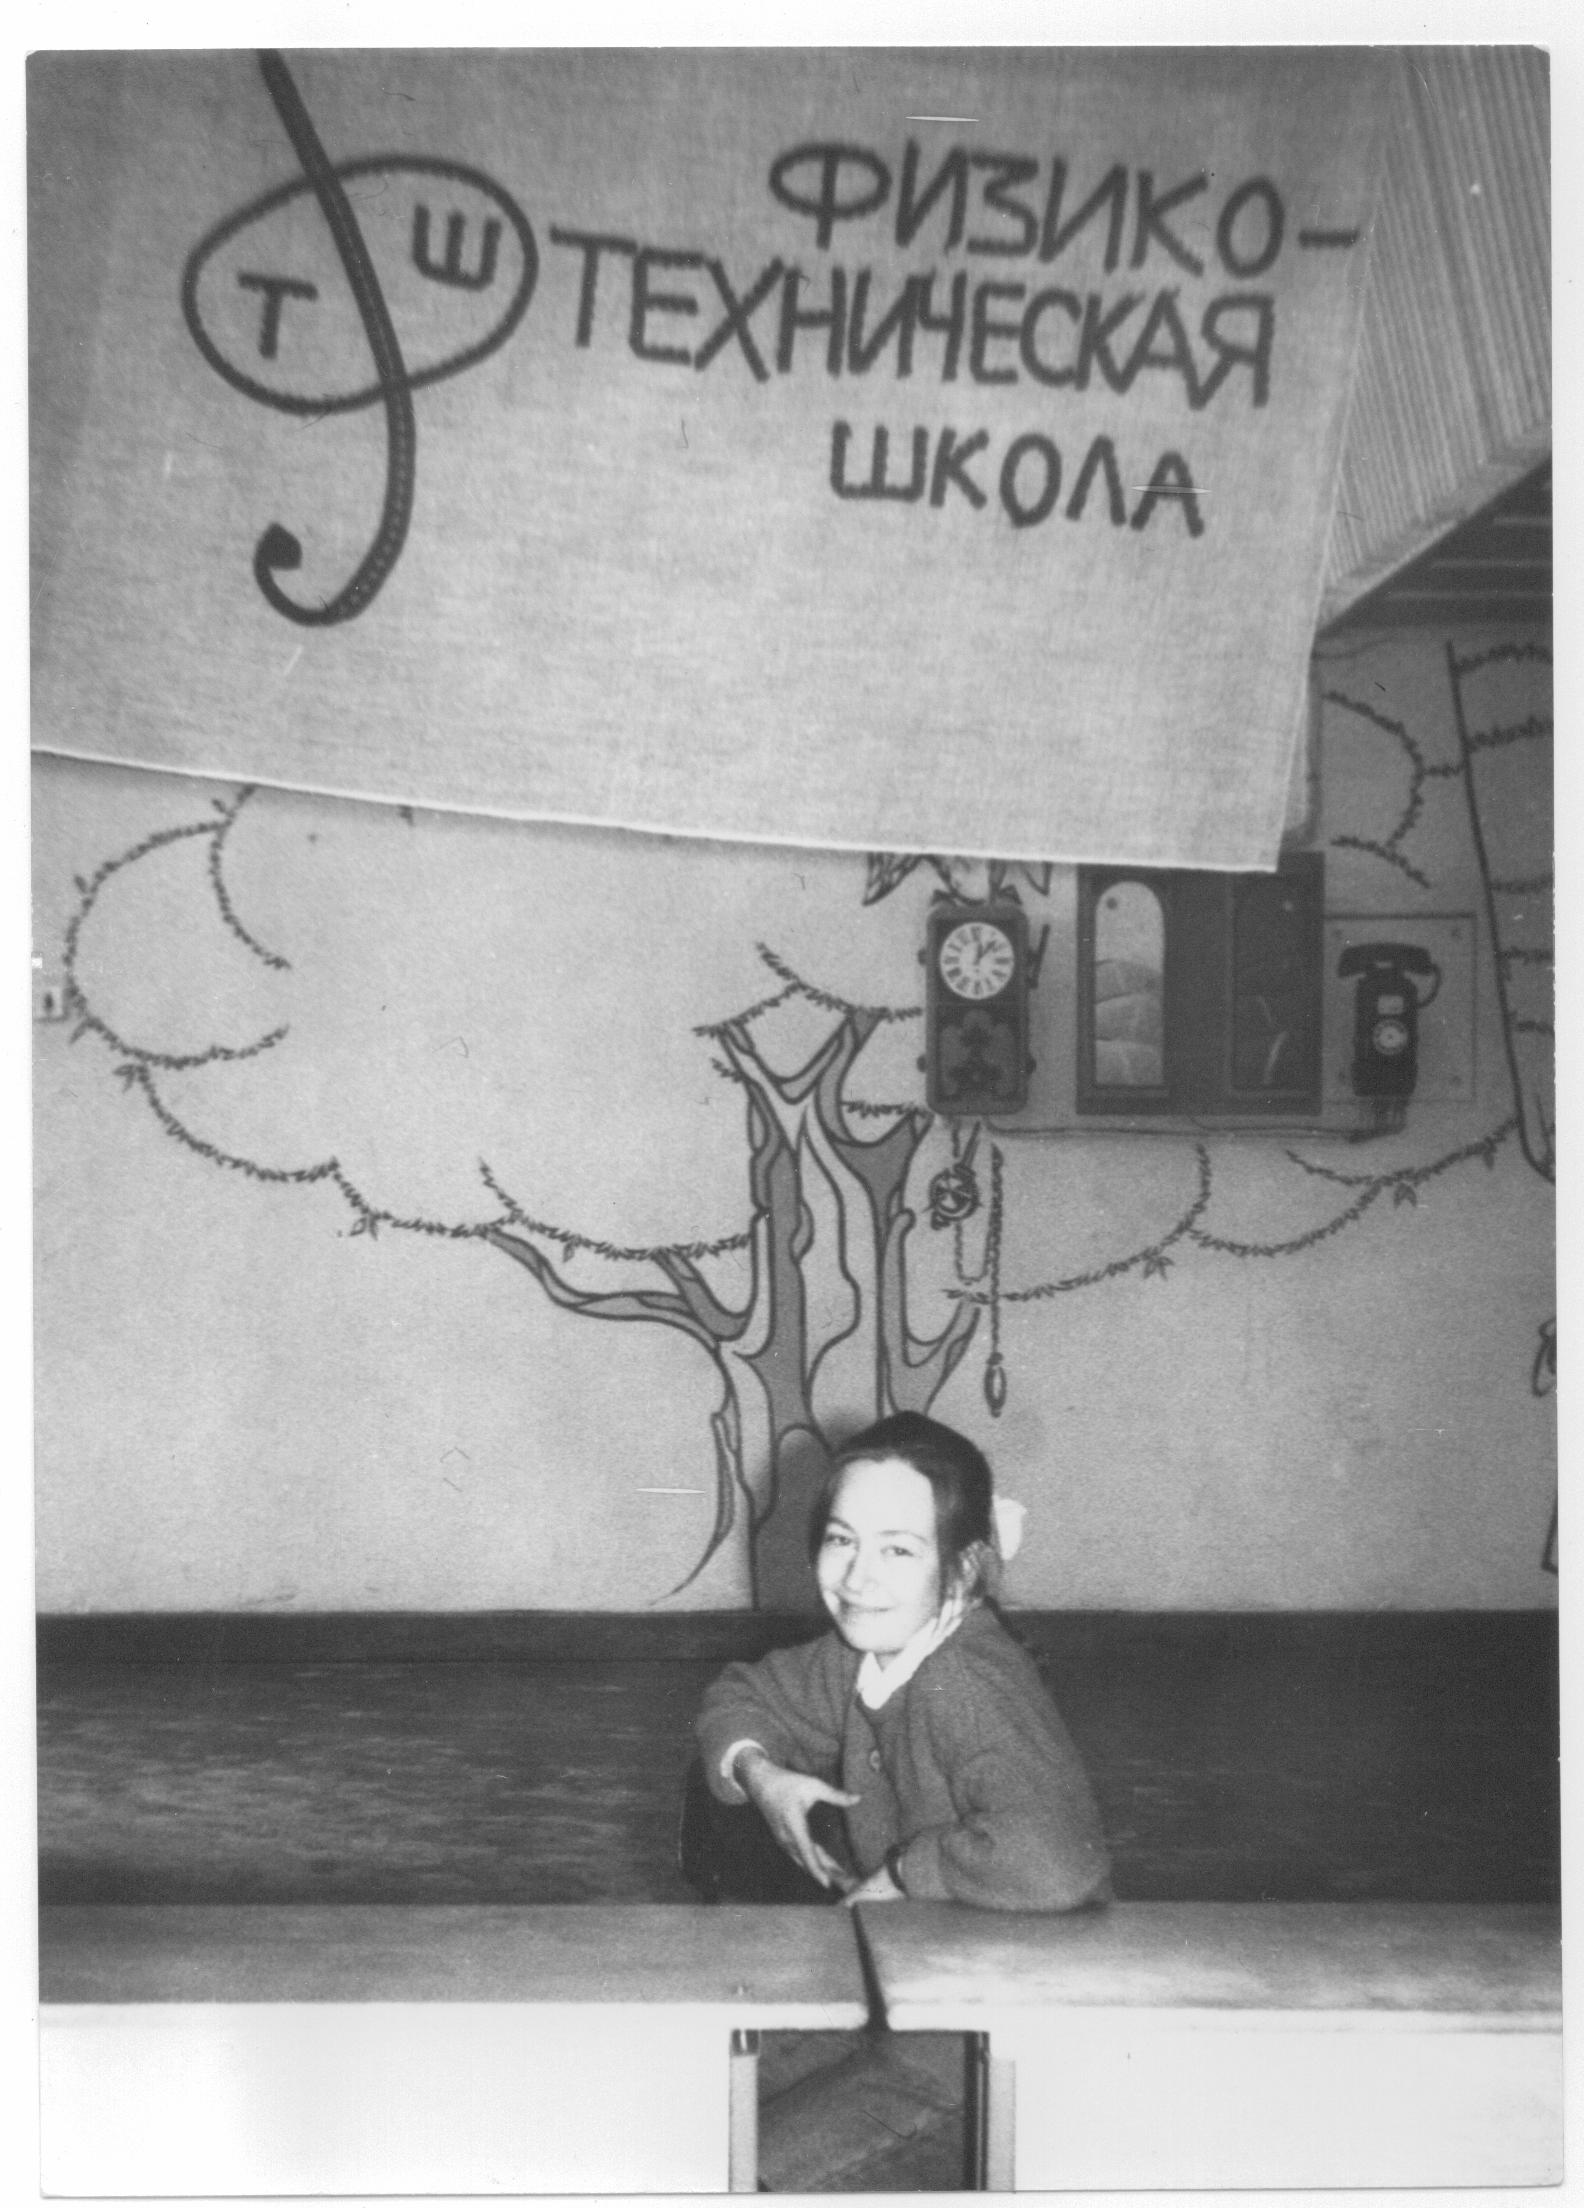 Т Ш
ФИЗИКО-
ТЕХНИЧЕСКАЯ
ШКОЛА